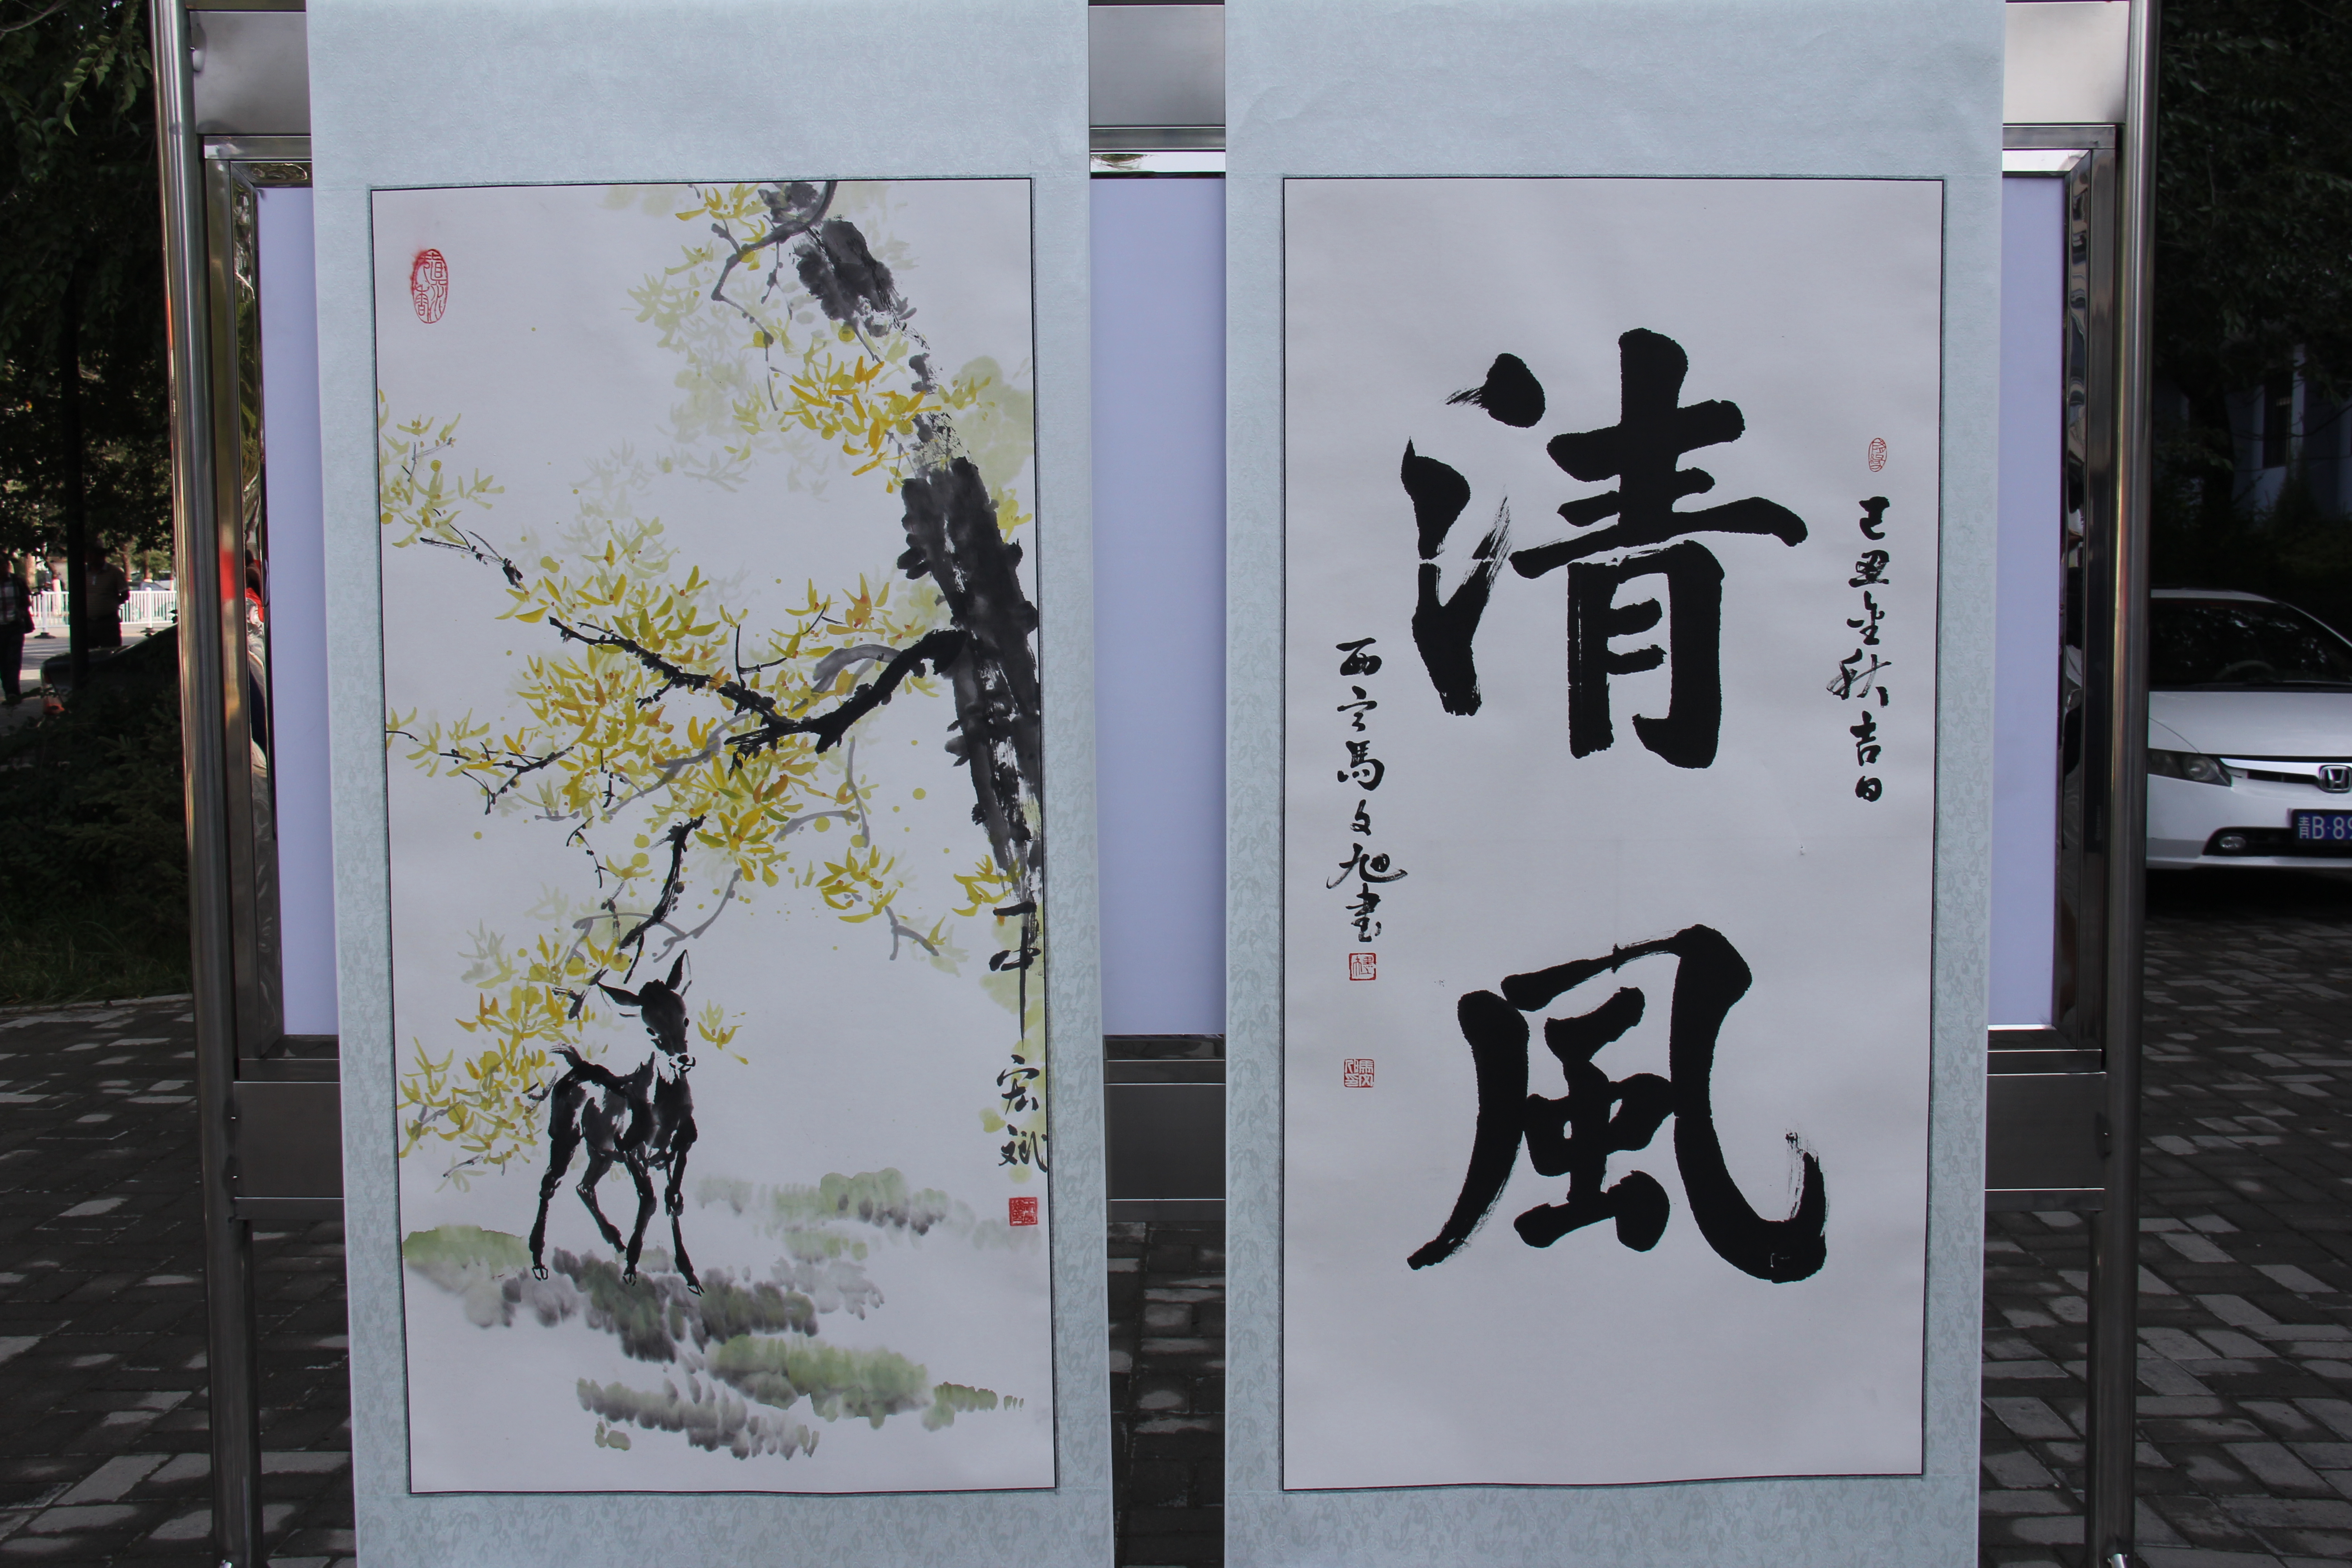 清風
己丑金秋吉日
西宁馬文旭書
宏斌
青B·89